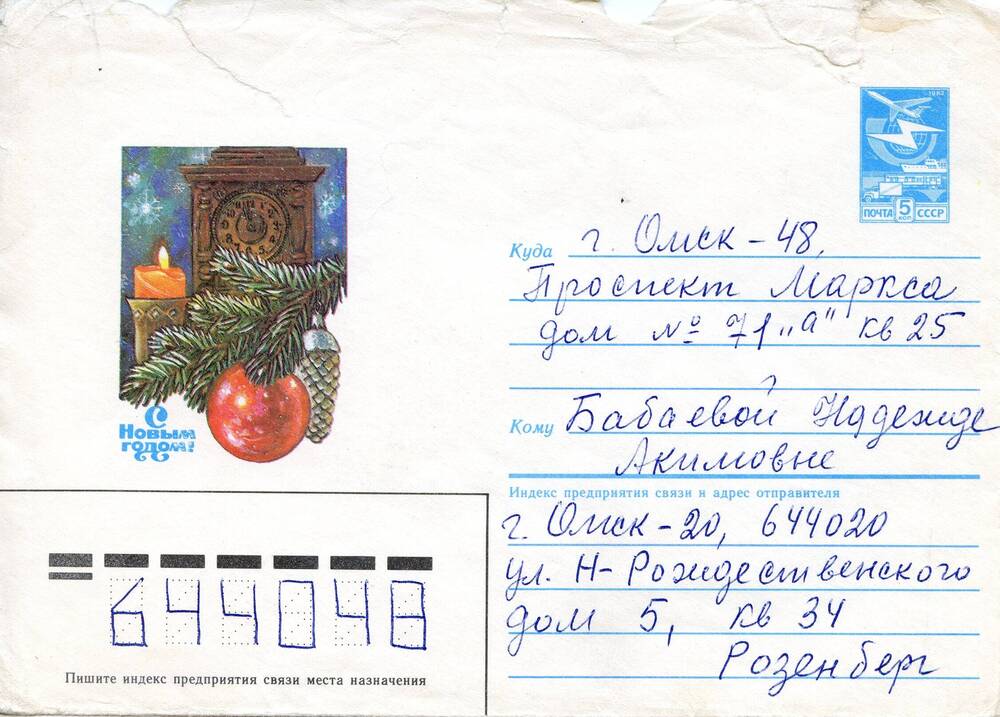 1982
ПОЧТА 5 КОП СССР
С
Новым
годом!
Куда г. Омск-48,
Проспект Маркса
дом № 71 „а" кв 25
Кому Бабаевой Надежде
Акимовне
Индекс предприятия связи и адрес отправителя
г. Омск-20, 644020
ул. Н-Рождественского
дом 5, кв 34
Розенберг
644048
Пишите индекс предприятия связи места назначения